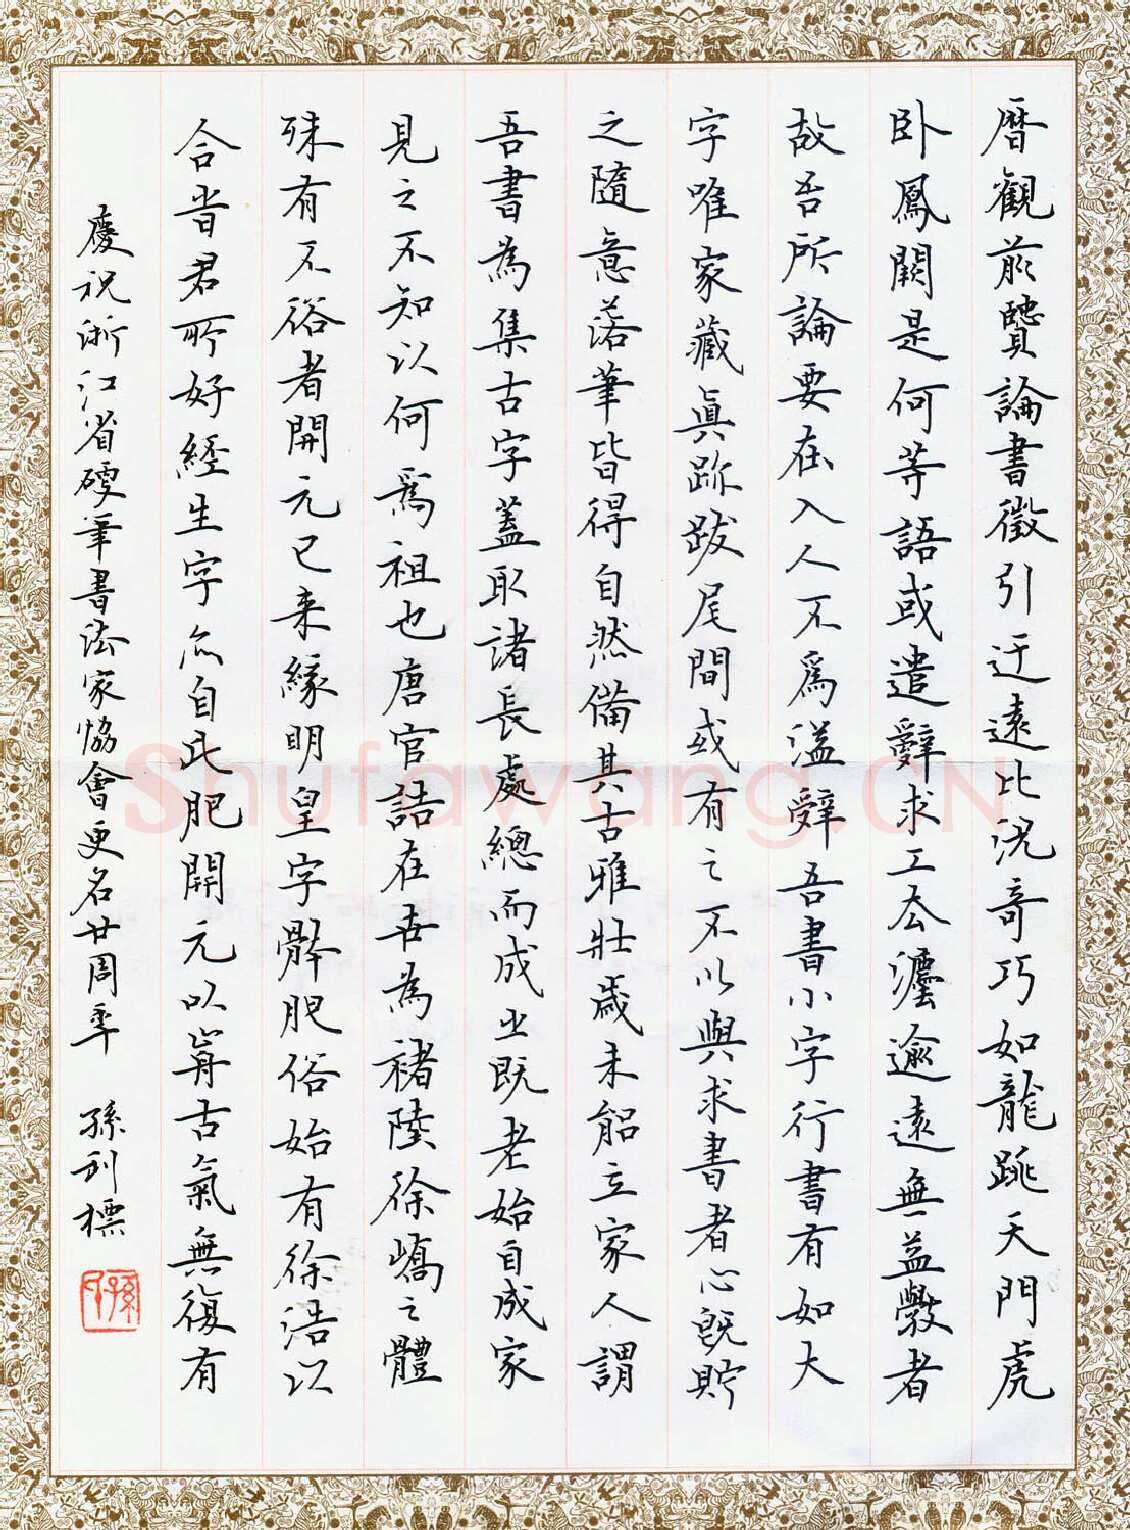 曆觀前賢論書徵引迂遠比況奇巧如龍跳天門虎
卧鳳闕是何等語或遣辭求工去法逾遠無益學者
故吾所論要在入人不為溢辭吾書小字行書有如大
字唯家藏真跡跋尾間或有之不以與求書者心既貯
之隨意落筆皆得自然備其古雅壯歲未能立家人謂
吾書為集古字蓋取諸長處總而成之既老始自成家
見之不知以何為祖也唐官誥在世為褚陸徐嶠之體
殊有不俗者開元已来緣明皇字體肥俗始有徐浩以
合時君所好經生字亦自此肥開元以前古氣無復有
慶祝浙江省硬筆書法家協會更名廿周年 孫利標
Shufawang.CN